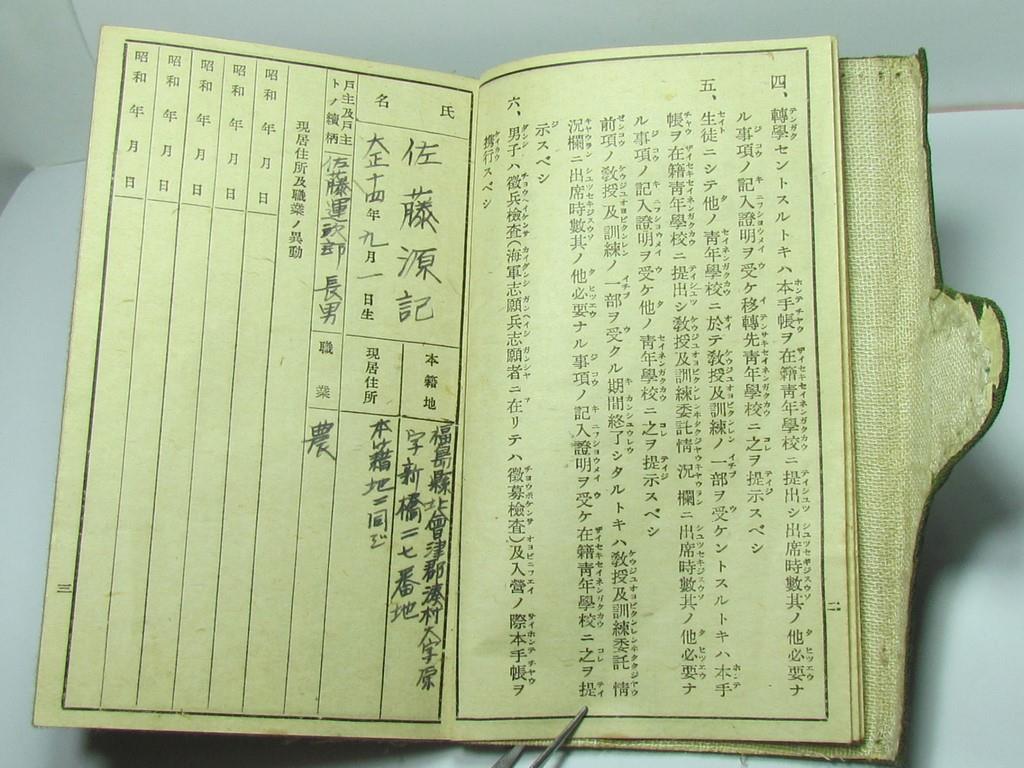 四、轉學セントスルトキハ本手帳ヲ在籍青年學校ニ提出シ出席時數其ノ他必要ナ
ル事項ノ記入證明ヲ受ケ移轉先青年學校ニ之ヲ提示スベシ
五、生徒ニシテ他ノ青年學校ニ於テ敎授及訓練ノ一部ヲ受ケントスルトキハ本手
帳ヲ在籍青年學校ニ提出シ敎授及訓練委託情況欄ニ出席時數其ノ他必要ナ
ル事項ノ記入證明ヲ受ケ他ノ青年學校ニ之ヲ提示スベシ
前項ノ敎授及訓練ノ一部ヲ受クル期間終了シタルトキハ敎授及訓練委託情
況欄ニ出席時數其ノ他必要ナル事項ノ記入證明ヲ受ケ在籍青年學校ニ之ヲ提
示スベシ
六、男子ハ徵兵檢査(海軍志願兵志願者ニ在リテハ徵募檢査)及入營ノ際本手帳ヲ
携行スベシ
二
氏名
佐藤源記
大正十四年九月一日生
本籍地
福島縣北會津郡湊村大字原
字新橋二七番地
現居住所
本籍地ニ同ジ
戶主及戶主トノ續柄
佐藤運次郎 長男
職業
農
現居住所及職業ノ異動
昭和 年 月 日
昭和 年 月 日
昭和 年 月 日
昭和 年 月 日
昭和 年 月 日
三